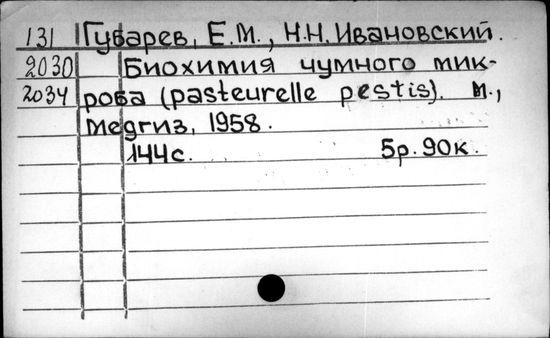 131 Губарев, Е.М., Н.Н. Ивановский.
2030 Биохимия чумного мик-
2034 роба (pasteurelle pestis). М.,
Медгиз, 1958.
144с. 5р. 90к.